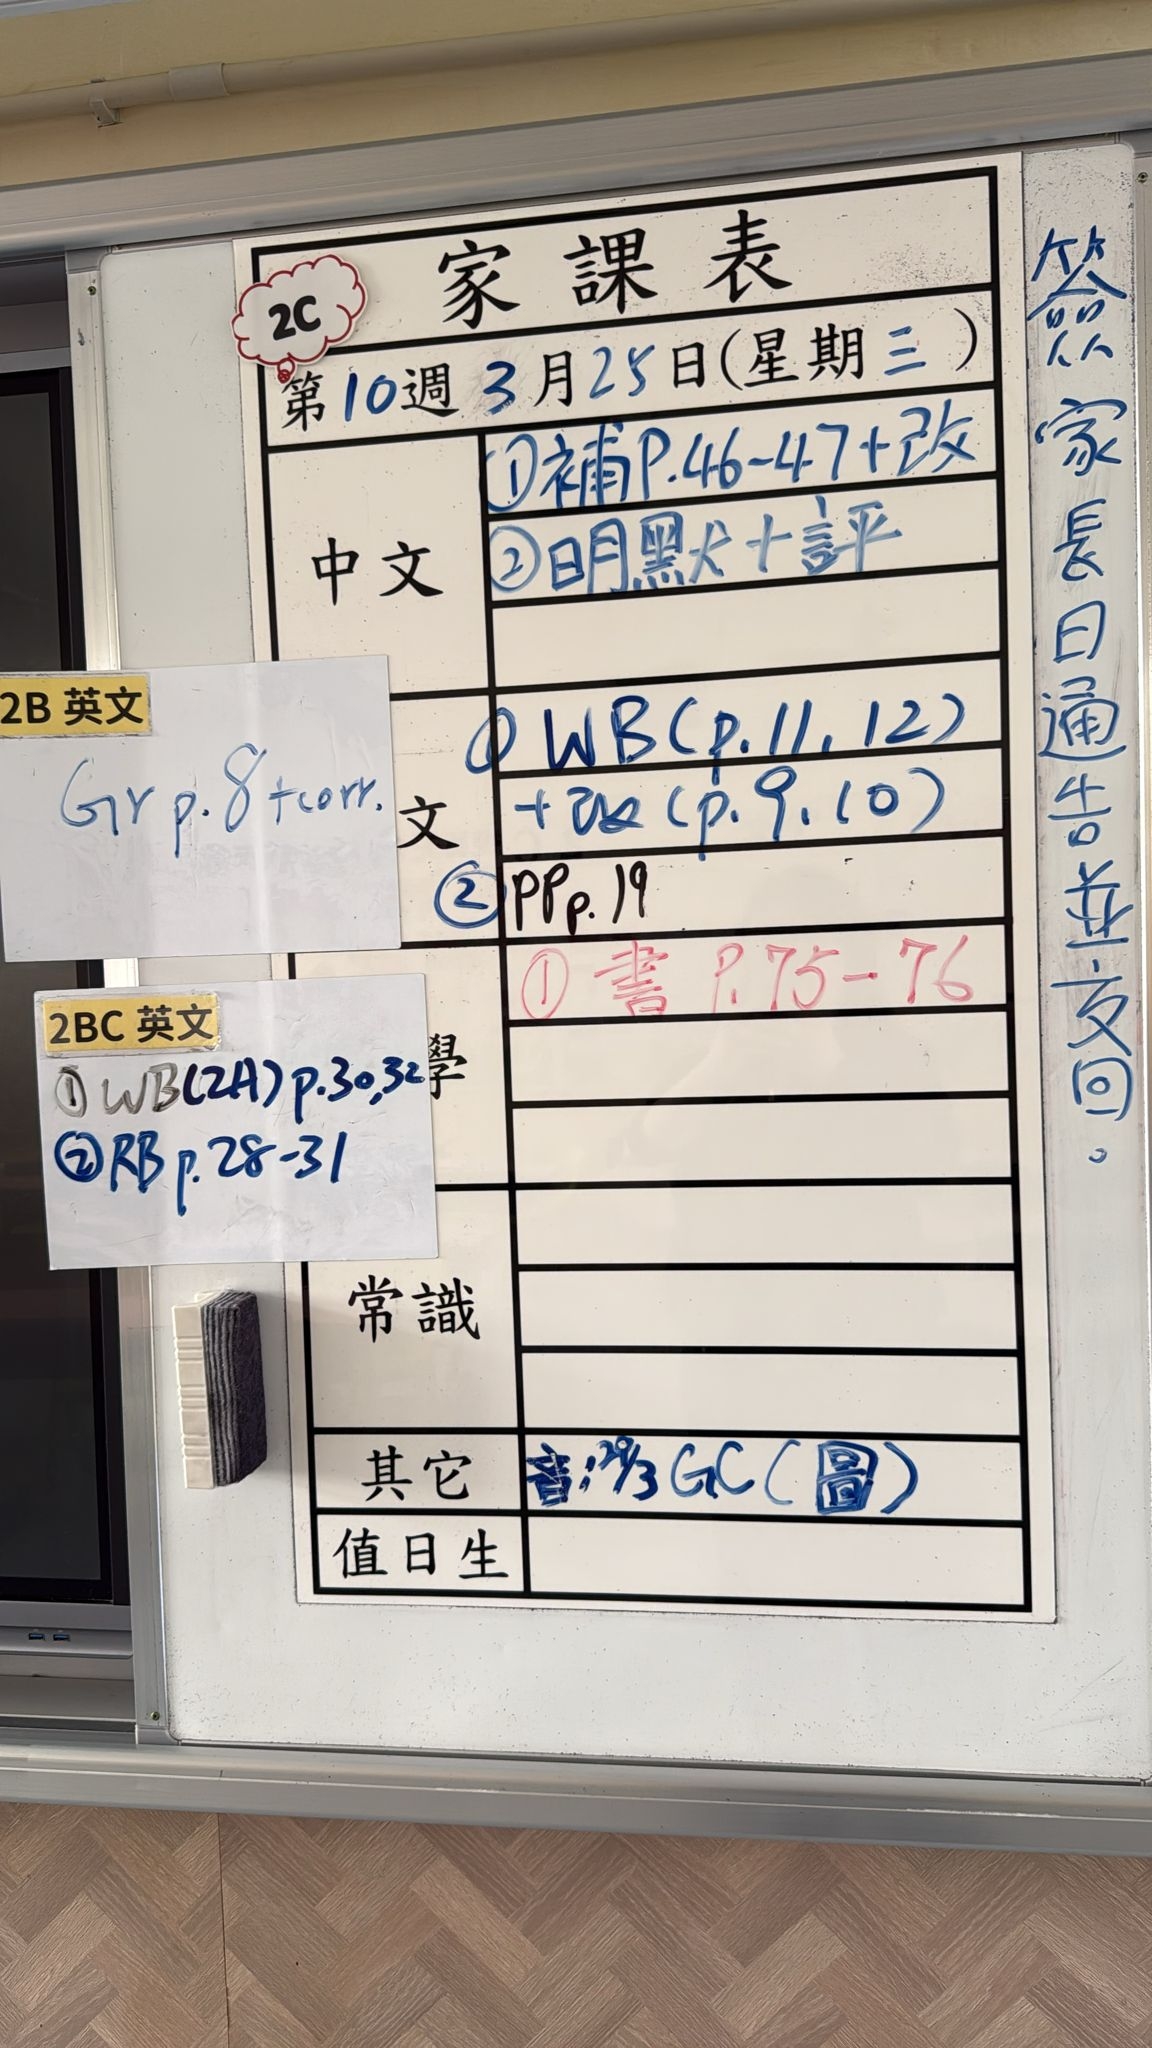 家課表
2C
第10週3月25日(星期三)
中文
①補P.46-47+改
②明默+評
文
① WB(p.11, 12)
+改(p.9, 10)
② PP p.19
學
① 書 P.75-76
常識
其它
書:
GC(圖)
值日生
2B 英文
Gr p.8 +corr.
2BC 英文
① WB(2A) p.30,32
② RB p.28-31
簽家長日通告並交回。